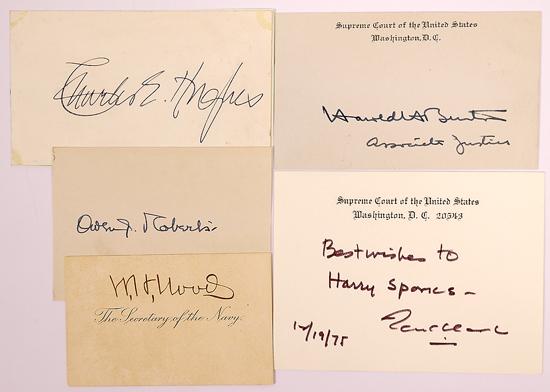 Charles E. Hughes
Supreme Court of the United States
Washington, D.C.
Harold H Burton
Associate Justice
Owen J. Roberts
W. H. Moody
The Secretary of the Navy.
Supreme Court of the United States
Washington, D. C. 20543
Best wishes to
Harry